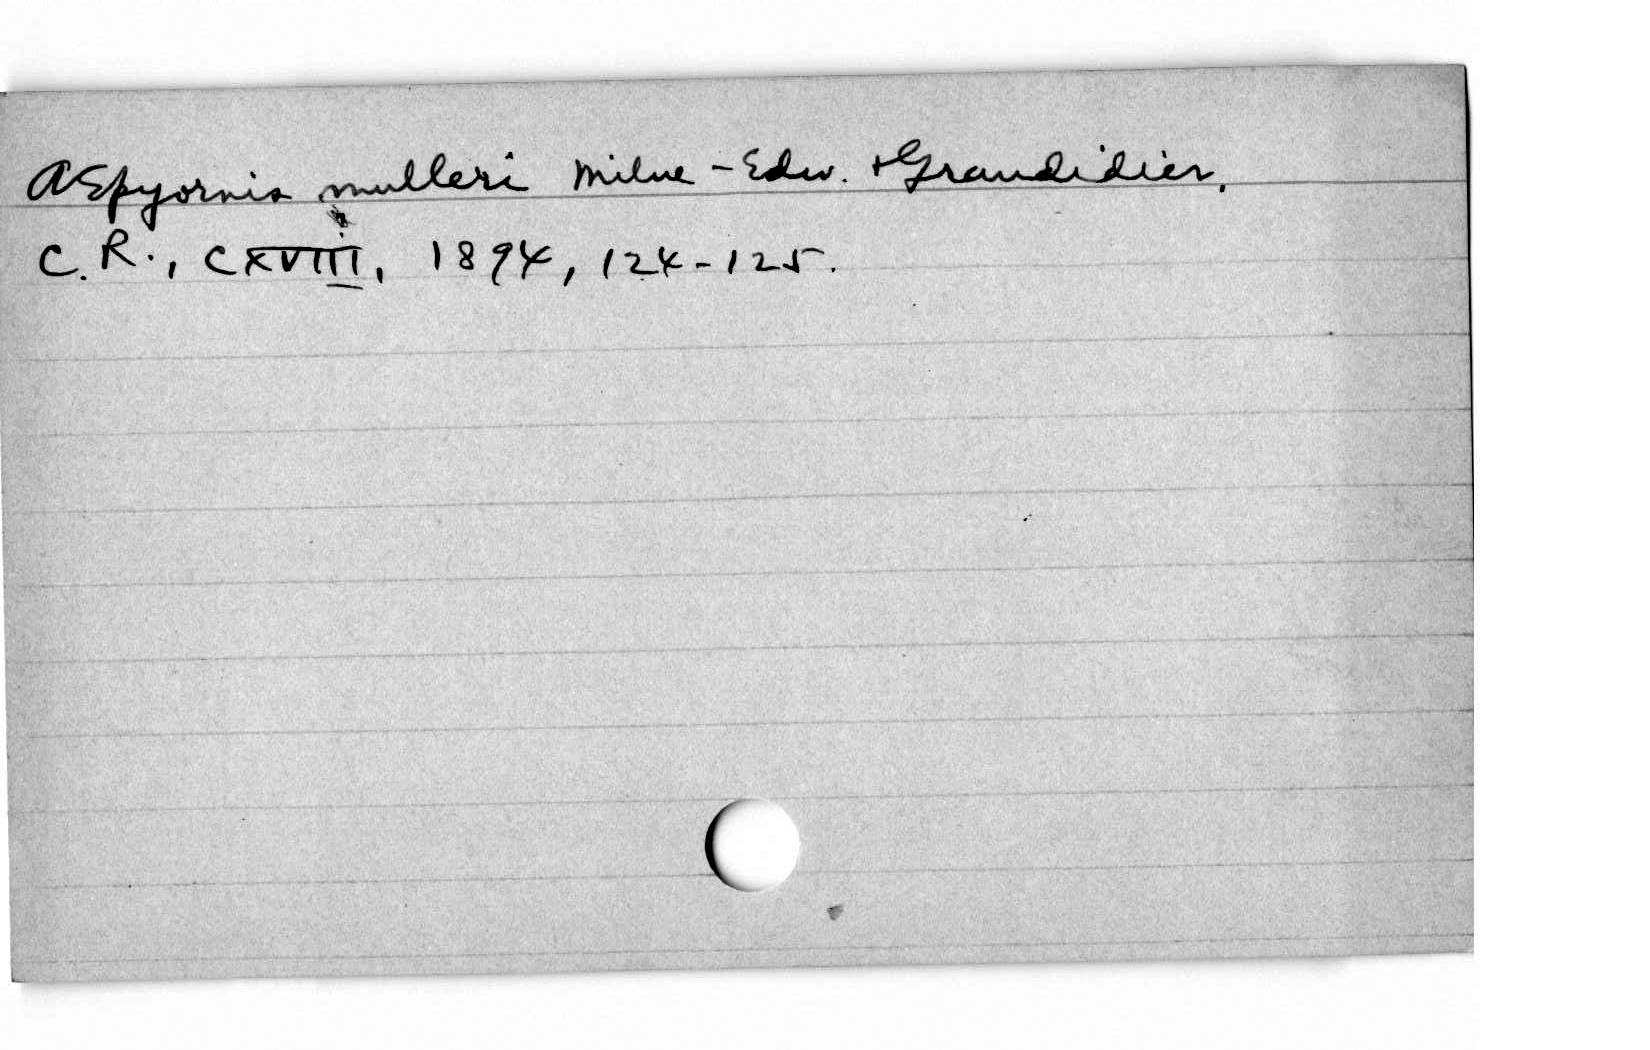 AEpyornis mulleri Milne-Edw. + Grandidier.
C. R., CXVIII, 1894, 124-125.